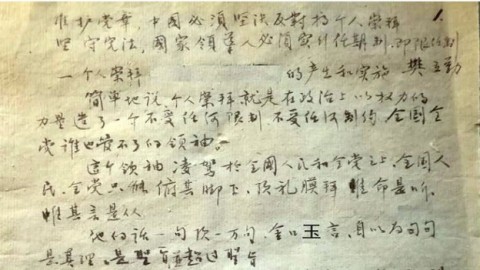 维护党章,中国必须坚决反对搞个人崇拜
坚守宪法,国家领导人必须实行任期制,即限任制
一 个人崇拜的产生和实施 樊立勤
简单地说,个人崇拜就是在政治上以权力的
力量造了一个不受任何限制不受任何制约,全国全
党谁也管不了的领袖。
这个领袖凌驾于全国人民和全党之上,全国人
民、全党只能俯其脚下,顶礼膜拜,惟命是听,
惟其言是从。
他的话一句顶一万句,金口玉言,自以为句句
是真理,是圣旨超过圣旨